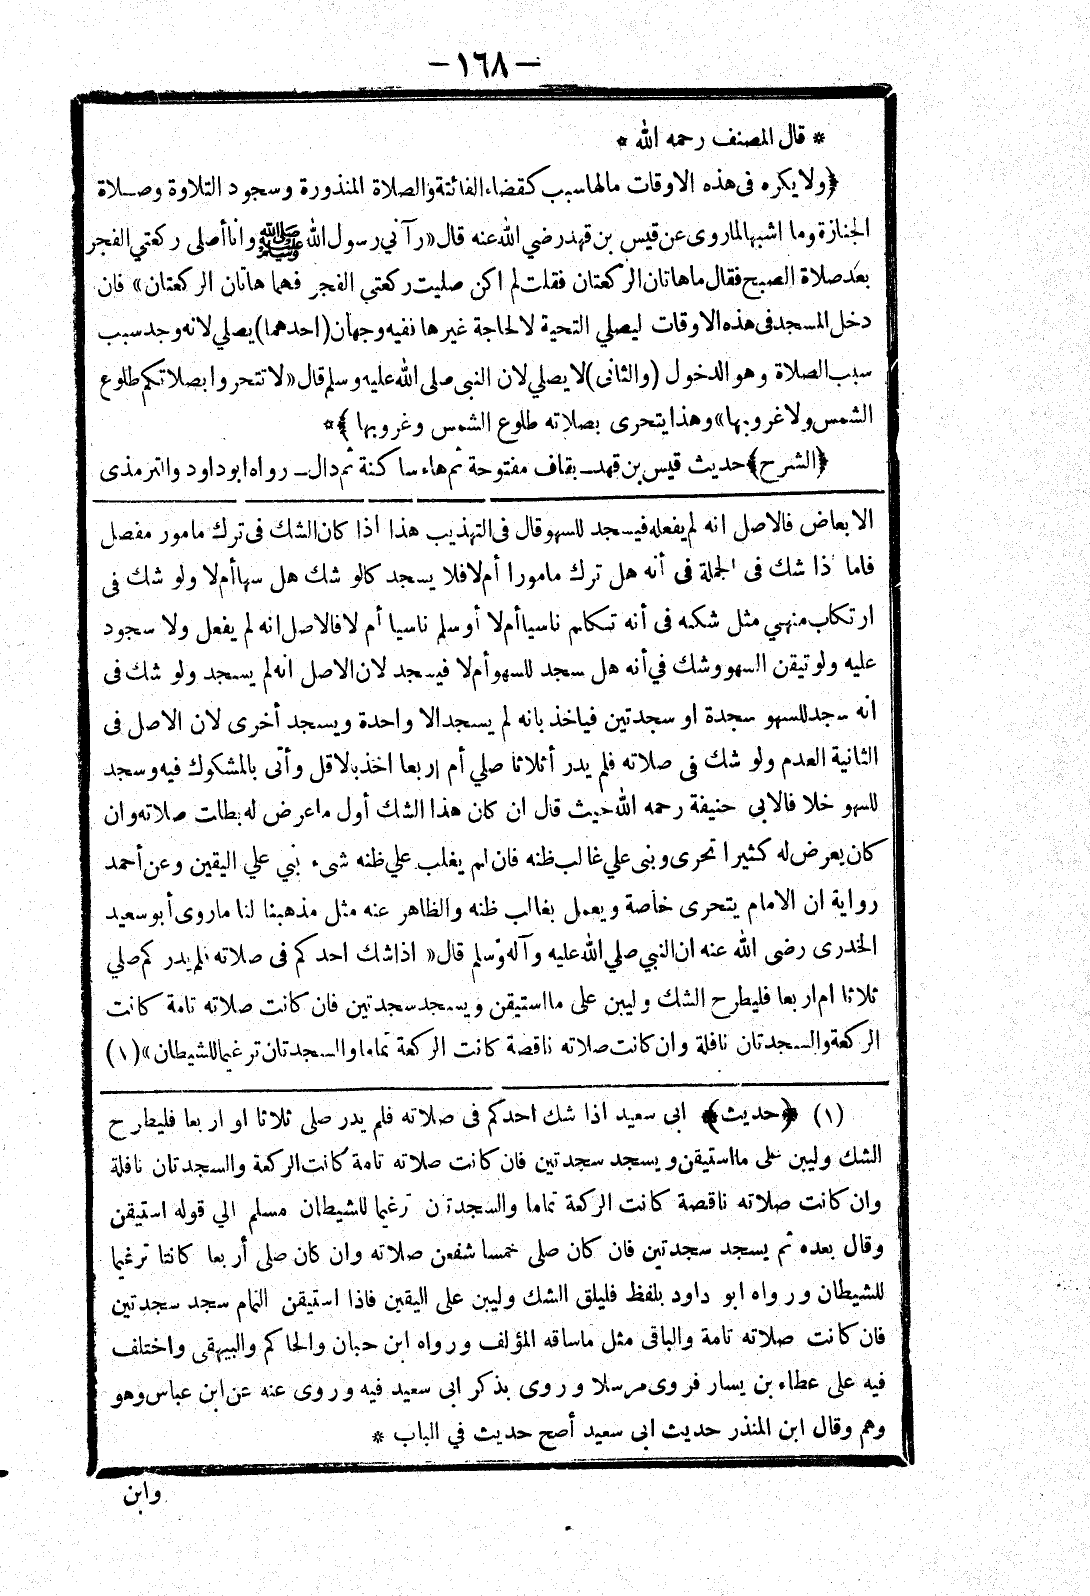 — ١٦٨ —
* قال المصنف رحمه الله *
﴿ولا يكره فى هذه الاوقات مالها سبب كقضاء الفائتة والصلاة المنذورة وسجود التلاوة وصلاة
الجنازة وما اشبهها لماروى عن قيس بن قهد رضي الله عنه قال «رآني رسول الله ﷺ وانا أصلى ركعتي الفجر
بعد صلاة الصبح فقال ماهاتان الركعتان فقلت لم اكن صليت ركعتي الفجر فهما هاتان الركعتان» فان
دخل المسجد فى هذه الاوقات ليصلي التحية لا لحاجة غيرها نفيه وجهان (احدهما) يصلي لانه وجد سبب
سبب الصلاة وهو الدخول (والثانى) لا يصلي لان النبى صلى الله عليه وسلم قال «لا تتحروا بصلاتكم طلوع
الشمس ولا غروبها» وهذا يتحرى بصلاته طلوع الشمس وغروبها ﴾*
﴿الشرح﴾ حديث قيس بن قهد ــ بقاف مفتوحة ثم هاء ساكنة ثم دال ــ رواه ابو داود والترمذى
الابعاض فالاصل انه لم يفعله فيسجد للسهو قال فى التهذيب هذا اذا كان الشك فى ترك مامور مفصل
فاما اذا شك فى الجملة فى أنه هل ترك مامورا أم لا فلا يسجد كما لو شك هل سها أم لا ولو شك فى
ارتكاب منهي مثل شكه فى أنه تكلم ناسيا أم لا أو سلم ناسيا أم لا فالاصل انه لم يفعل ولا سجود
عليه ولو تيقن السهو وشك في أنه هل سجد للسهو أم لا فيسجد لان الاصل انه لم يسجد ولو شك فى
انه سجد للسهو سجدة او سجدتين فياخذ بانه لم يسجد الا واحدة ويسجد أخرى لان الاصل فى
الثانية العدم ولو شك فى صلاته فلم يدر أثلاثا صلي أم اربعا اخذ بالاقل وأتى بالمشكوك فيه وسجد
للسهو خلافا لابى حنيفة رحمه الله حيث قال ان كان هذا الشك أول ما عرض له بطلت صلاته وان
كان يعرض له كثيرا تحرى وبنى علي غالب ظنه فان لم يغلب علي ظنه شىء بني علي اليقين وعن أحمد
رواية ان الامام يتحرى خاصة ويعمل بغالب ظنه والظاهر عنه مثل مذهبنا لنا ماروى أبو سعيد
الخدرى رضى الله عنه ان النبي صلي الله عليه وآله وسلم قال «اذا شك احدكم فى صلاته فلم يدر كم صلي
ثلاثا ام اربعا فليطرح الشك وليبن على ما استيقن ويسجد سجدتين فان كانت صلاته تامة كانت
الركعة والسجدتان نافلة وان كانت صلاته ناقصة كانت الركعة تماما والسجدتان ترغيما للشيطان» (١)
(١) ﴿حديث﴾ ابى سعيد اذا شك احدكم فى صلاته فلم يدر صلى ثلاثا او اربعا فليطرح
الشك وليبن على ما استيقن ويسجد سجدتين فان كانت صلاته تامة كانت الركعة والسجدتان نافلة
وان كانت صلاته ناقصة كانت الركعة تماما والسجدتان ترغيما للشيطان مسلم الي قوله استيقن
وقال بعده ثم يسجد سجدتين فان كان صلى خمسا شفعن صلاته وان كان صلى أربعا كانتا ترغيما
للشيطان ورواه ابو داود بلفظ فليلق الشك وليبن على اليقين فاذا استيقن التمام سجد سجدتين
فان كانت صلاته تامة والباقى مثل ماساقه المؤلف ورواه ابن حبان والحاكم والبيهقى واختلف
فيه على عطاء بن يسار فروى مرسلا وروى بذكر ابى سعيد فيه وروى عنه عن ابن عباس وهو
وهم وقال ابن المنذر حديث ابى سعيد أصح حديث في الباب *
وابن